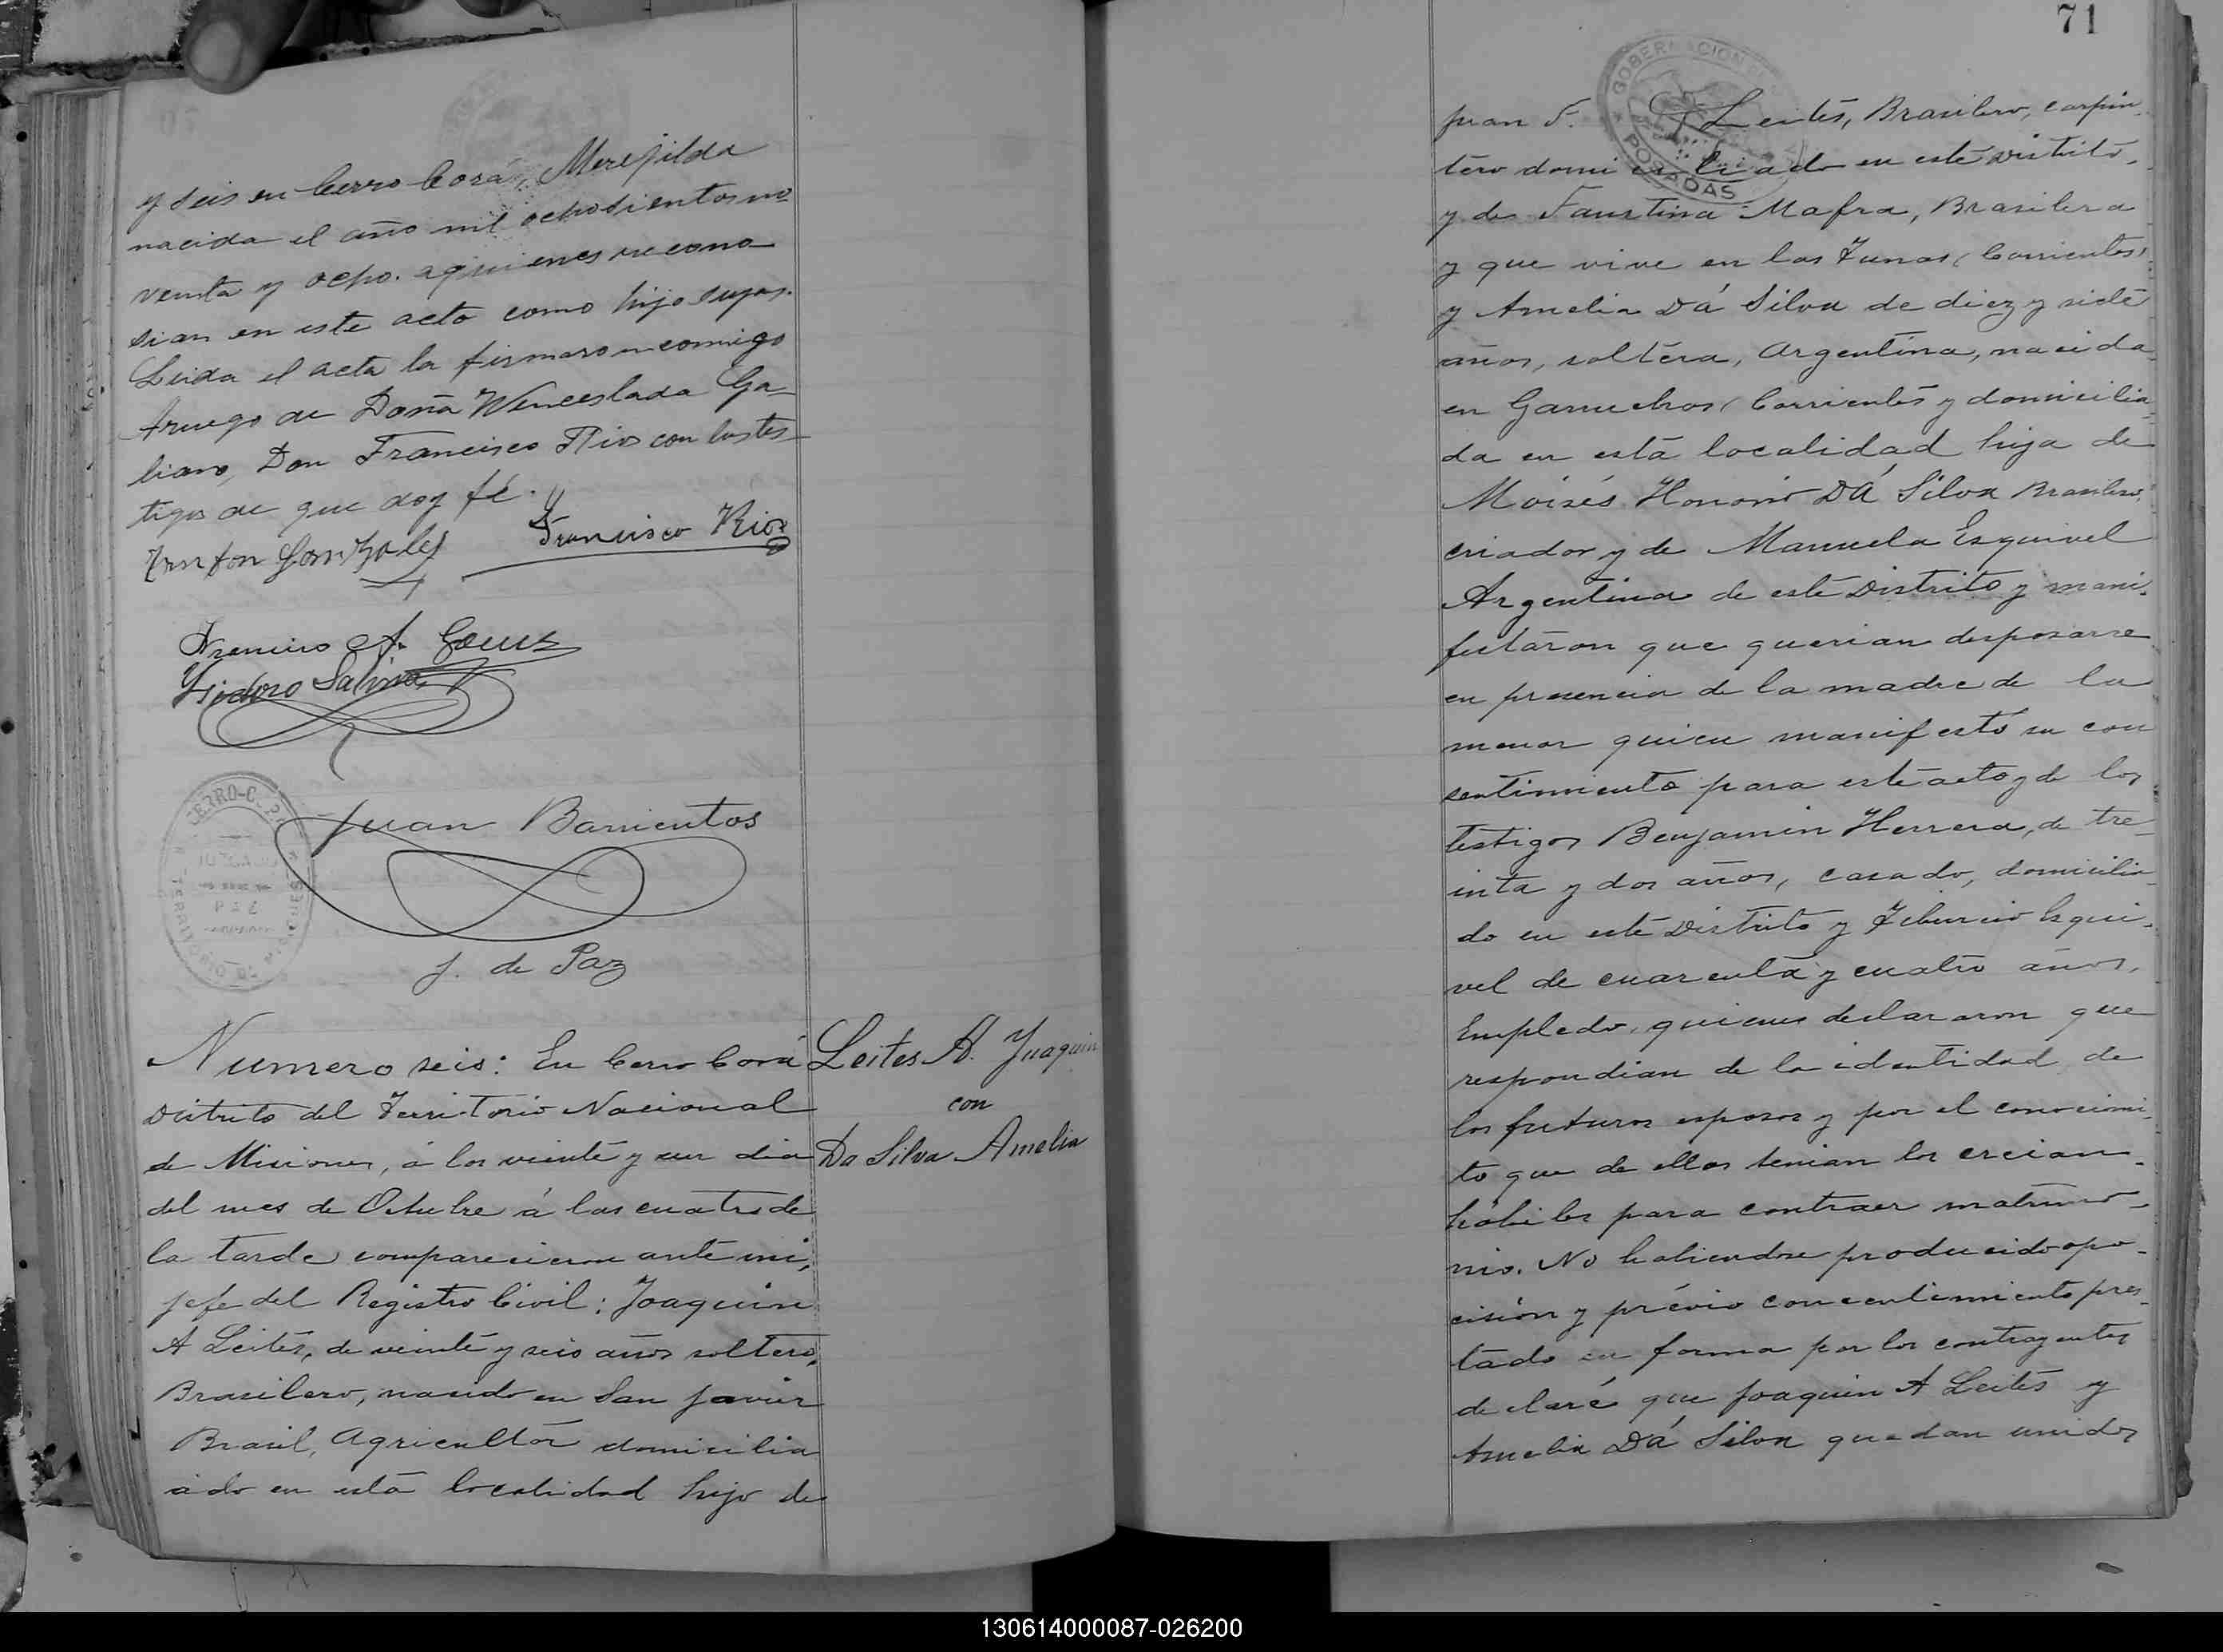 y seis en Cerro Corá, Merejilda
nacida el año mil ochosientos no
venta y ocho. a quienes recono
sian en este acto como hijo suyos.
Leida el acta la firmaron conmigo
Aruego de Doña Wenceslada Ga-
liano, Don Francisco Rios con los tes
tigos de que doy fé.
Gonzales
Francisco Rios
Francisco A.
Ysidoro Salinas
CERRO-C
JUZGADO
DE PAZ
TERRITORIO DE MISIONES
Juan Barrientos
J. de Paz
Numero seis: En Cerro Corá
Distrito del Territorio Nacional
de Misiones, á los veinte y un dia
del mes de Octubre á las cuatro de
la tarde comparecieron ante mi,
jefe del Registro Civil: Joaquin
A Leites, de veinte y seis años soltero,
Brasilero, nacido en San Javier
Brasil, Agricultor domicilia
ado en esta localidad hijo de
Leites A. Juaquin
con
Da Silva Amelia
71
GOBERNACION DE
POSADAS
Juan F. Leites, Brasilero, carpin
tero domiciliado en este Distrito,
y de Faustina Mafra, Brasilera
y que vive en las Tunas (Corrientes)
y Amelia Dá Silva de diez y siete
años, soltera, Argentina, nacida
en Garruchos (Corrientes y domicilia
da en esta localidad hija de
Moisés Honorio Dá Silva Brasilero,
criador y de Manuela Esquivel
Argentina de este Distrito y mani-
festaron que querian desposarse
en presencia de la madre de la
menor quien manifestó su con
sentimiento para este acto y de los
testigos Benjamin Herrera, de tre-
inta y dos años, casado, domicilia-
do en este Distrito y Tiburcio Esqui-
vel de cuarenta y cuatro años,
Empledo, quienes declararon que
respondian de la identidad de
los futuros esposos y por el conocimi-
to que de ellos tenian los creian
hábiles para contraer matrimo-
nio. No habiendose producido opo-
cisión y prévio concentimiento pres-
tado en forma por los contrayentes
declaré que Joaquin A Leites y
Amelia Dá Silva quedan unidos
130614000087-026200